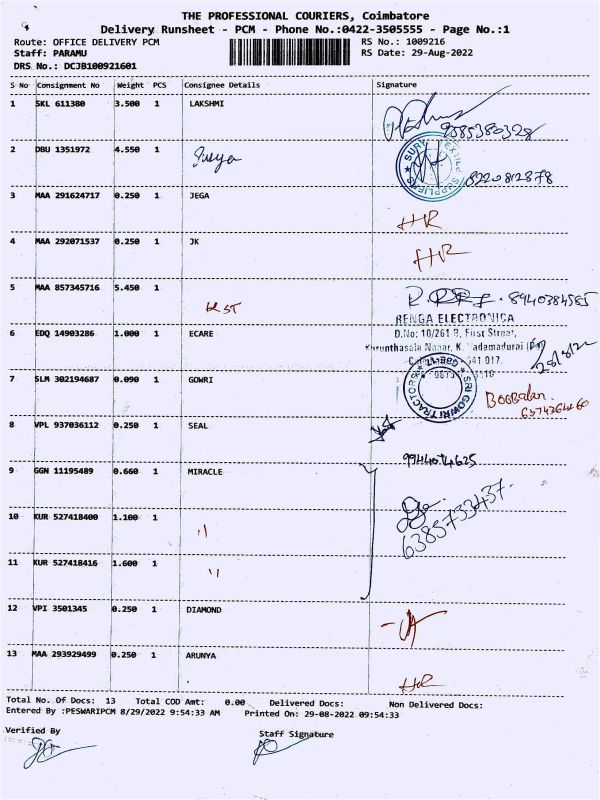 THE PROFESSIONAL COURIERS, Coimbatore
Delivery Runsheet - PCM - Phone No.:0422-3505555 - Page No.:1
Route: OFFICE DELIVERY PCM RS No.: 1009216
Staff: PARAMU RS Date: 29-Aug-2022
DRS No.: DCJB100921601
S No Consignment No Weight PCS Consignee Details Signature
1 SKL 611380 3.500 1 LAKSHMI
9585380328
2 DBU 1351972 4.550 1
8220812878
3 MAA 291624717 0.250 1 JEGA
HR
4 MAA 292071537 0.250 1 JK
HR
5 MAA 857345716 5.450 1
KST
8940384585
RENGA ELECTRONICA
D.No: 10/261 B, First Street,
6 EDQ 14903286 1.000 1 ECARE
7 SLM 302194687 0.090 1 GOWRI
SRI GOWRI TRACTORS
Boobalan
6374264260
8 VPL 937036112 0.250 1 SEAL
9944074625
9 GGN 11195489 0.660 1 MIRACLE
6385733437
10 KUR 527418400 1.100 1
"
11 KUR 527418416 1.600 1
"
12 VPI 3501345 0.250 1 DIAMOND
13 MAA 293929499 0.250 1 ARUNYA
Total No. Of Docs: 13 Total COD Amt: 0.00 Delivered Docs: Non Delivered Docs:
Entered By :PESWARIPCM 8/29/2022 9:54:33 AM Printed On: 29-08-2022 09:54:33
Verified By Staff Signature